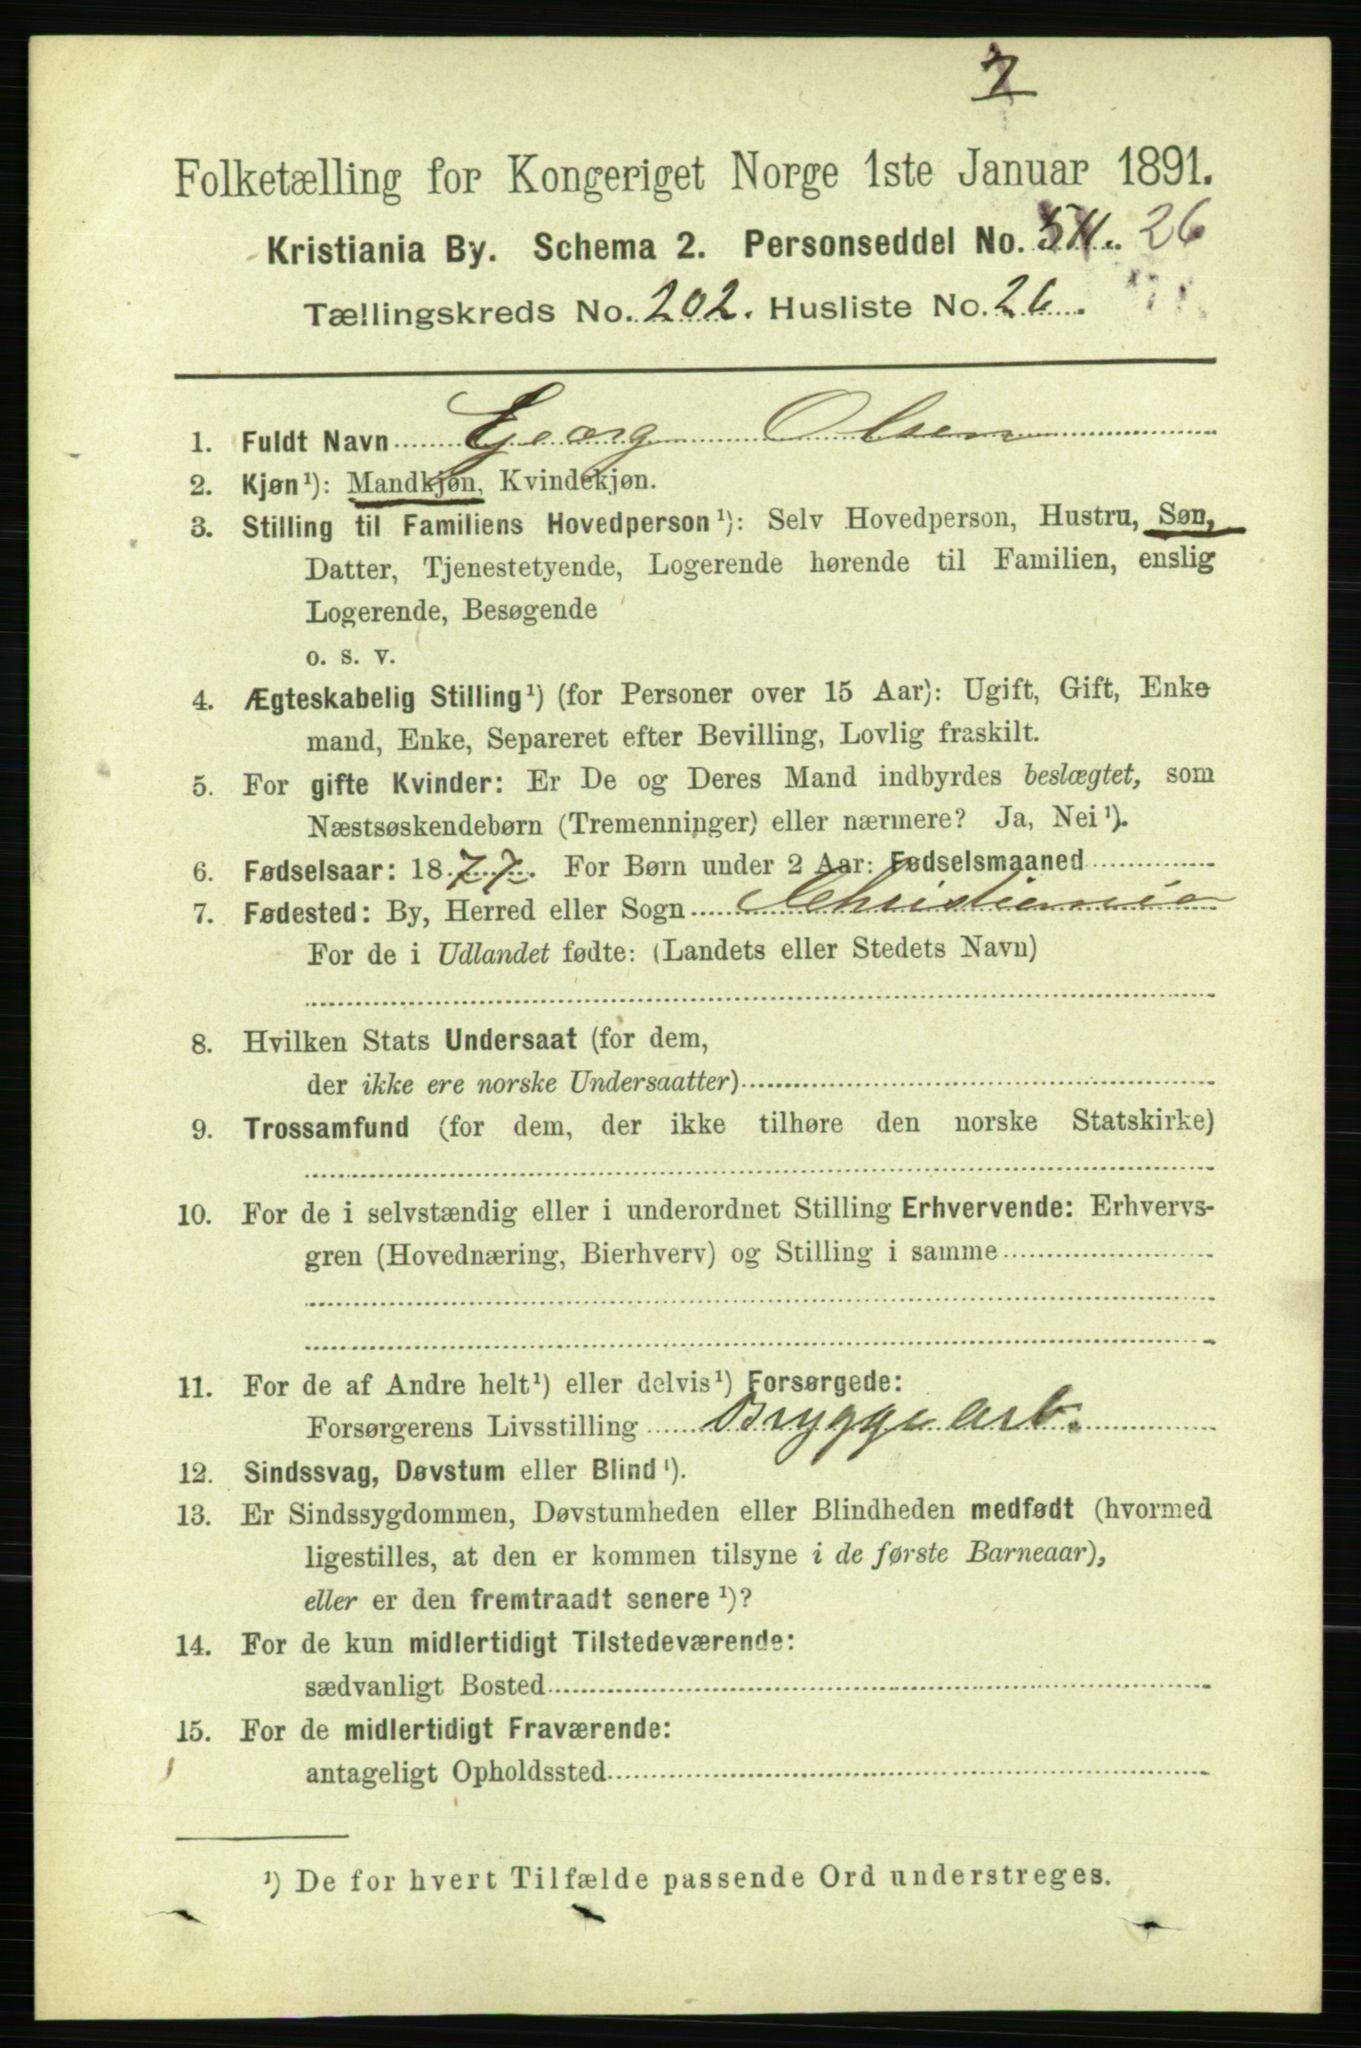 7
Folketælling for Kongeriget Norge 1ste Januar 1891.
Kristiania By. Schema 2. Personseddel No. 26
Tællingskreds No. 202. Husliste No. 26.
1. Fuldt Navn Georg Olsen
2. Kjøn¹): Mandkjøn, Kvindekjøn.
3. Stilling til Familiens Hovedperson¹): Selv Hovedperson, Hustru, Søn,
Datter, Tjenestetyende, Logerende hørende til Familien, enslig
Logerende, Besøgende
o. s. v.
4. Ægteskabelig Stilling¹) (for Personer over 15 Aar): Ugift, Gift, Enke
mand, Enke, Separeret efter Bevilling, Lovlig fraskilt.
5. For gifte Kvinder: Er De og Deres Mand indbyrdes beslægtet, som
Næstsøskendebørn (Tremenninger) eller nærmere? Ja, Nei¹).
6. Fødselsaar: 1877. For Børn under 2 Aar: Fødselsmaaned
7. Fødested: By, Herred eller Sogn Christiania
For de i Udlandet fødte: (Landets eller Stedets Navn)
8. Hvilken Stats Undersaat (for dem,
der ikke ere norske Undersaatter)
9. Trossamfund (for dem, der ikke tilhøre den norske Statskirke)
10. For de i selvstændig eller i underordnet Stilling Erhvervende: Erhvervs-
gren (Hovednæring, Bierhverv) og Stilling i samme
11. For de af Andre helt¹) eller delvis¹) Forsørgede:
Forsørgerens Livsstilling Bryggearb.
12. Sindssvag, Døvstum eller Blind¹).
13. Er Sindssygdommen, Døvstumheden eller Blindheden medfødt (hvormed
ligestilles, at den er kommen tilsyne i de første Barneaar),
eller er den fremtraadt senere¹)?
14. For de kun midlertidigt Tilstedeværende:
sædvanligt Bosted
15. For de midlertidigt Fraværende:
antageligt Opholdssted
¹) De for hvert Tilfælde passende Ord understreges.